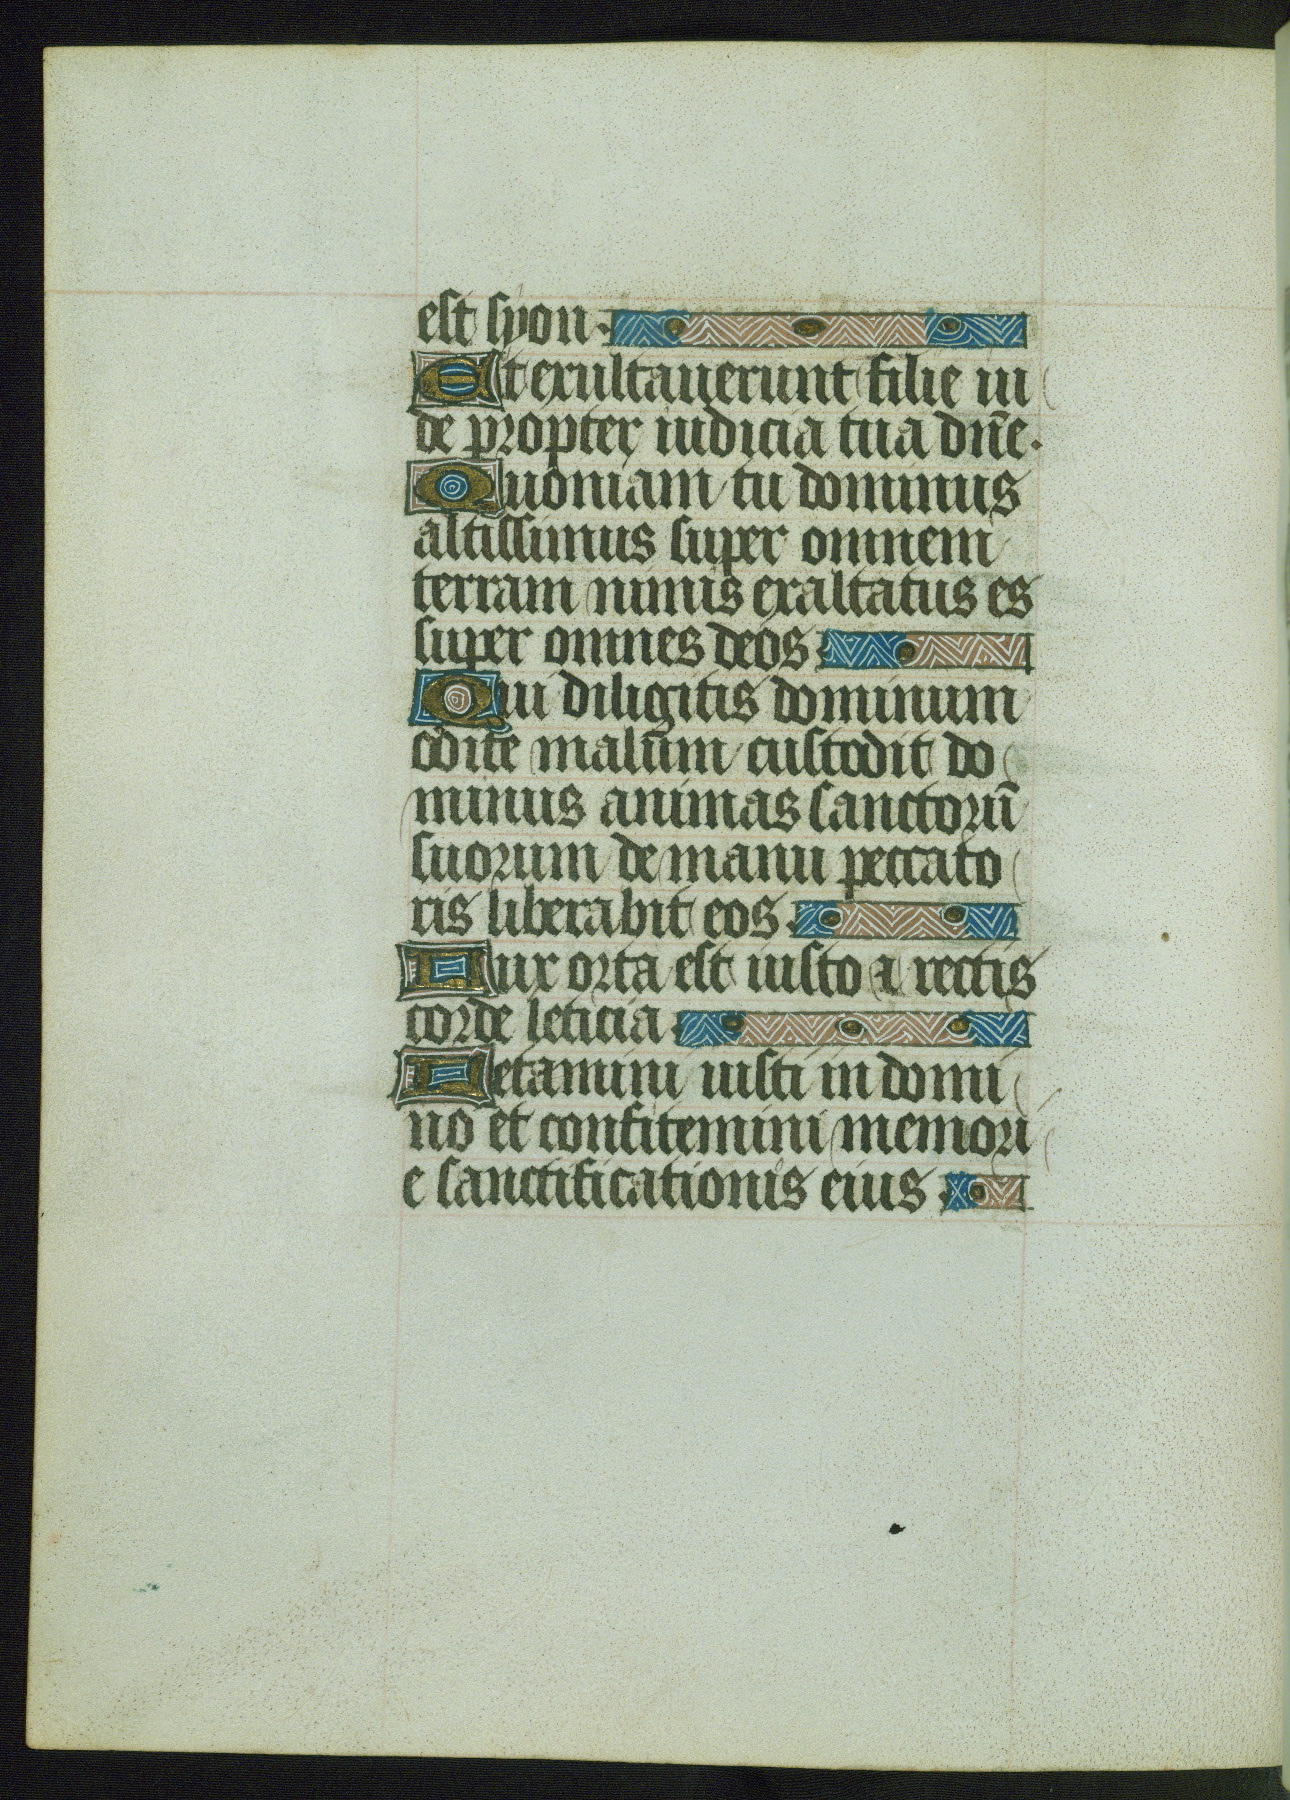 est syon.
Et exultauerunt filie iu
de propter iudicia tua dn̄e.
Quoniam tu dominus
altissimus super omnem
terram nimis exaltatus es
super omnes deos
Qui diligitis dominum
odite malum custodit do
minus animas sanctorū
suorum de manu peccato
ris liberabit eos.
Lux orta est iusto ⁊ rectis
corde leticia
Letamini iusti in domi
no et confitemini memori
e sanctificationis eius